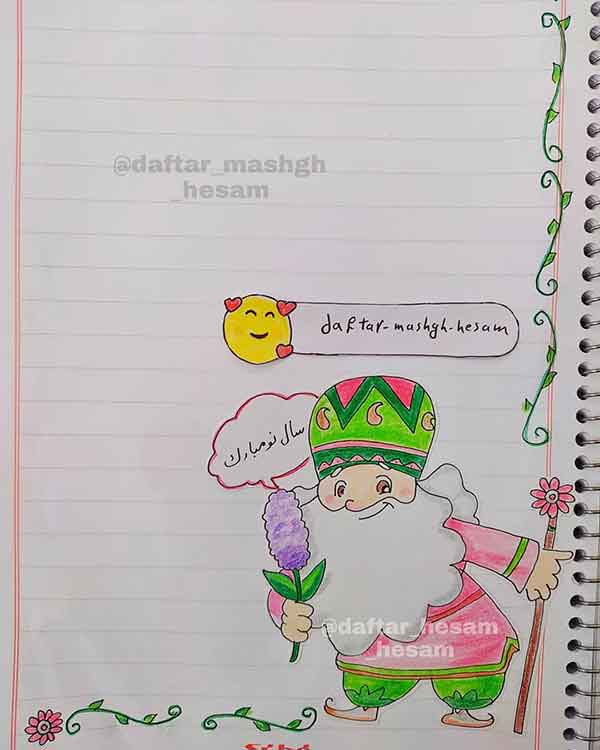 @daftar_mashgh
_hesam
daftar-mashgh-hesam
سال نو مبارک
@daftar_hesam
_hesam